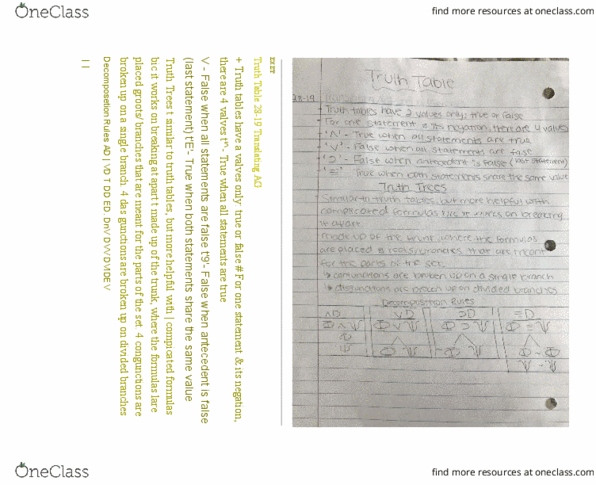 OneClass
find more resources at oneclass.com
Truth Table
28-19
- Truth tables have 2 values only; true or false
- For one statement & its negation, there are 4 values
- '∧' - True when all statements are true
- '∨' - False when all statements are fast
- '⊃' - False when antecedent is false (last statement)
- '≡' - True when both statements share the same value
Truth Trees
Similar to truth tables, but more helpful with
complicated formulas b/c it works on breaking
it apart
made up of the trunk, where the formulas
are placed & roots/branches that are meant
for the parts of the set.
↳ conjunctions are broken up on a single branch
↳ disjunctions are broken up on divided branches
Decomposition Rules
∧D ∨D ⊃D ≡D
Φ∧Ψ Φ∨Ψ Φ⊃Ψ Φ≡Ψ
Φ
Ψ
Φ Ψ ~Φ Ψ Φ ~Φ
Ψ ~Ψ
EXET
Truth Table 28-19 Translating AG
+ Truth tables have a valves only true or false # For one statement & its negation,
there are 4 valves t^- True when all statements are true
V - False when all statements are false t'9'- False when antecedent is false
(last statement) t'E'- True when both statements share the same value
Truth Trees t similar to truth tables, but more helpful with | compicated formulas
b1c it works on breaking at apart t made up of the trunk, where the formulas lare
placed groots/ branches that are meant for the parts of the set 4 congunctions are
broken up on a single branch. 4 das gunctions are broken up on divided branches
Decomposetion Rules AD | VD T DD ED
| |
OneClass
find more resources at oneclass.com